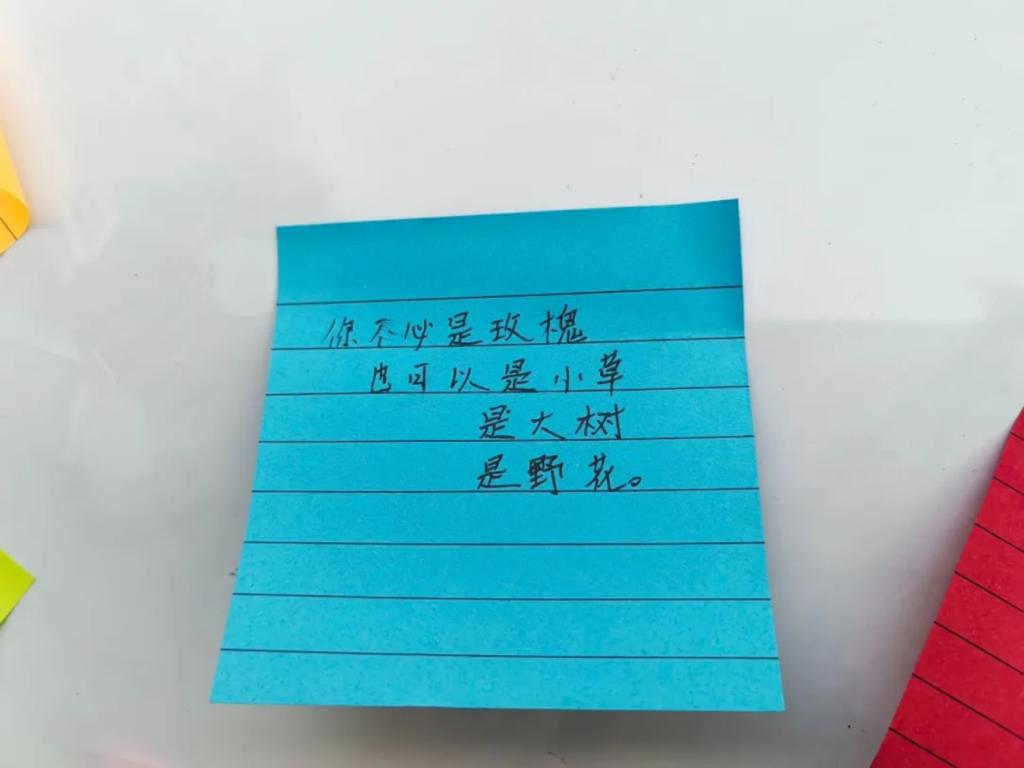 你不必是玫槐
也可以是小草
是大树
是野花。